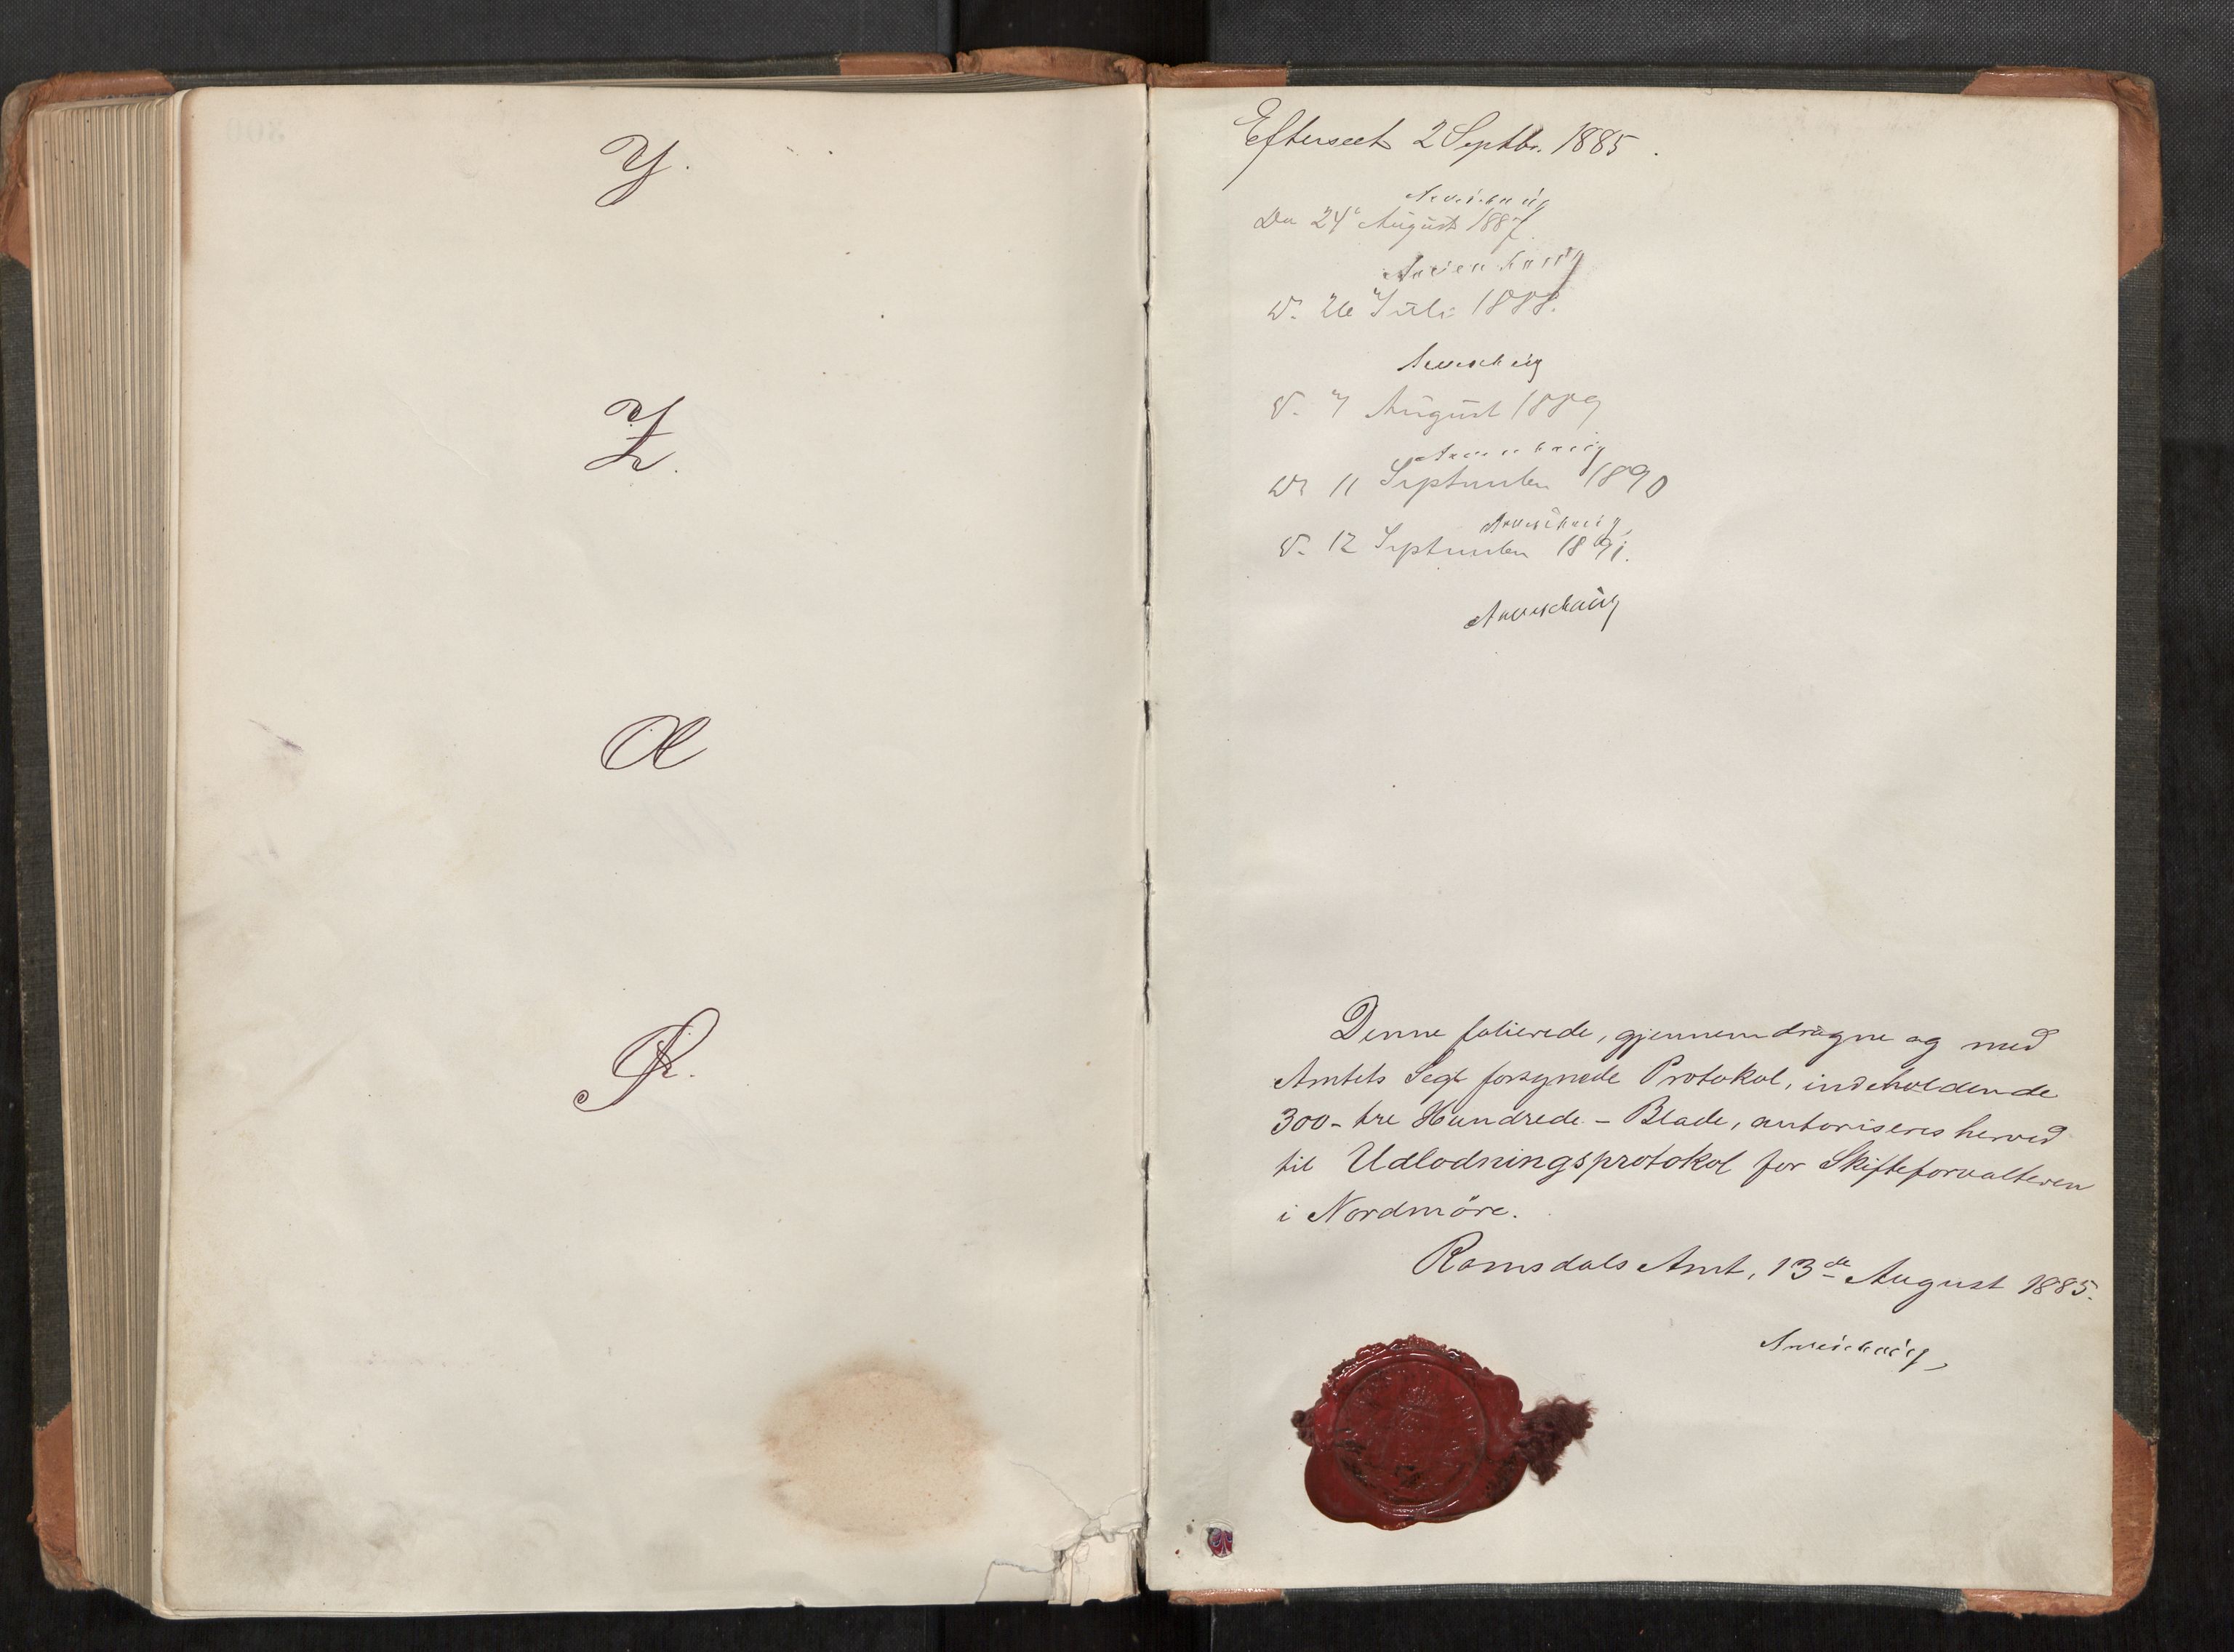 Y.
Z.
Æ
Ø.
Efterseet 2 Septbr. 1885.
Do 24 August 1887.
Do 26 Juli 1888.
Do 7 August 1889
Do 11 September 1890
Do 12 September 1891.
Denne folierede, gjennemdragne og med
Amtets Segl forsynede Protokol, indeholdende
300 - tre Hundrede - Blade, autoriseres herved
til Udlodningsprotokol for Skifteforvalteren
i Nordmöre.
Romsdals Amt, 13de August 1885.